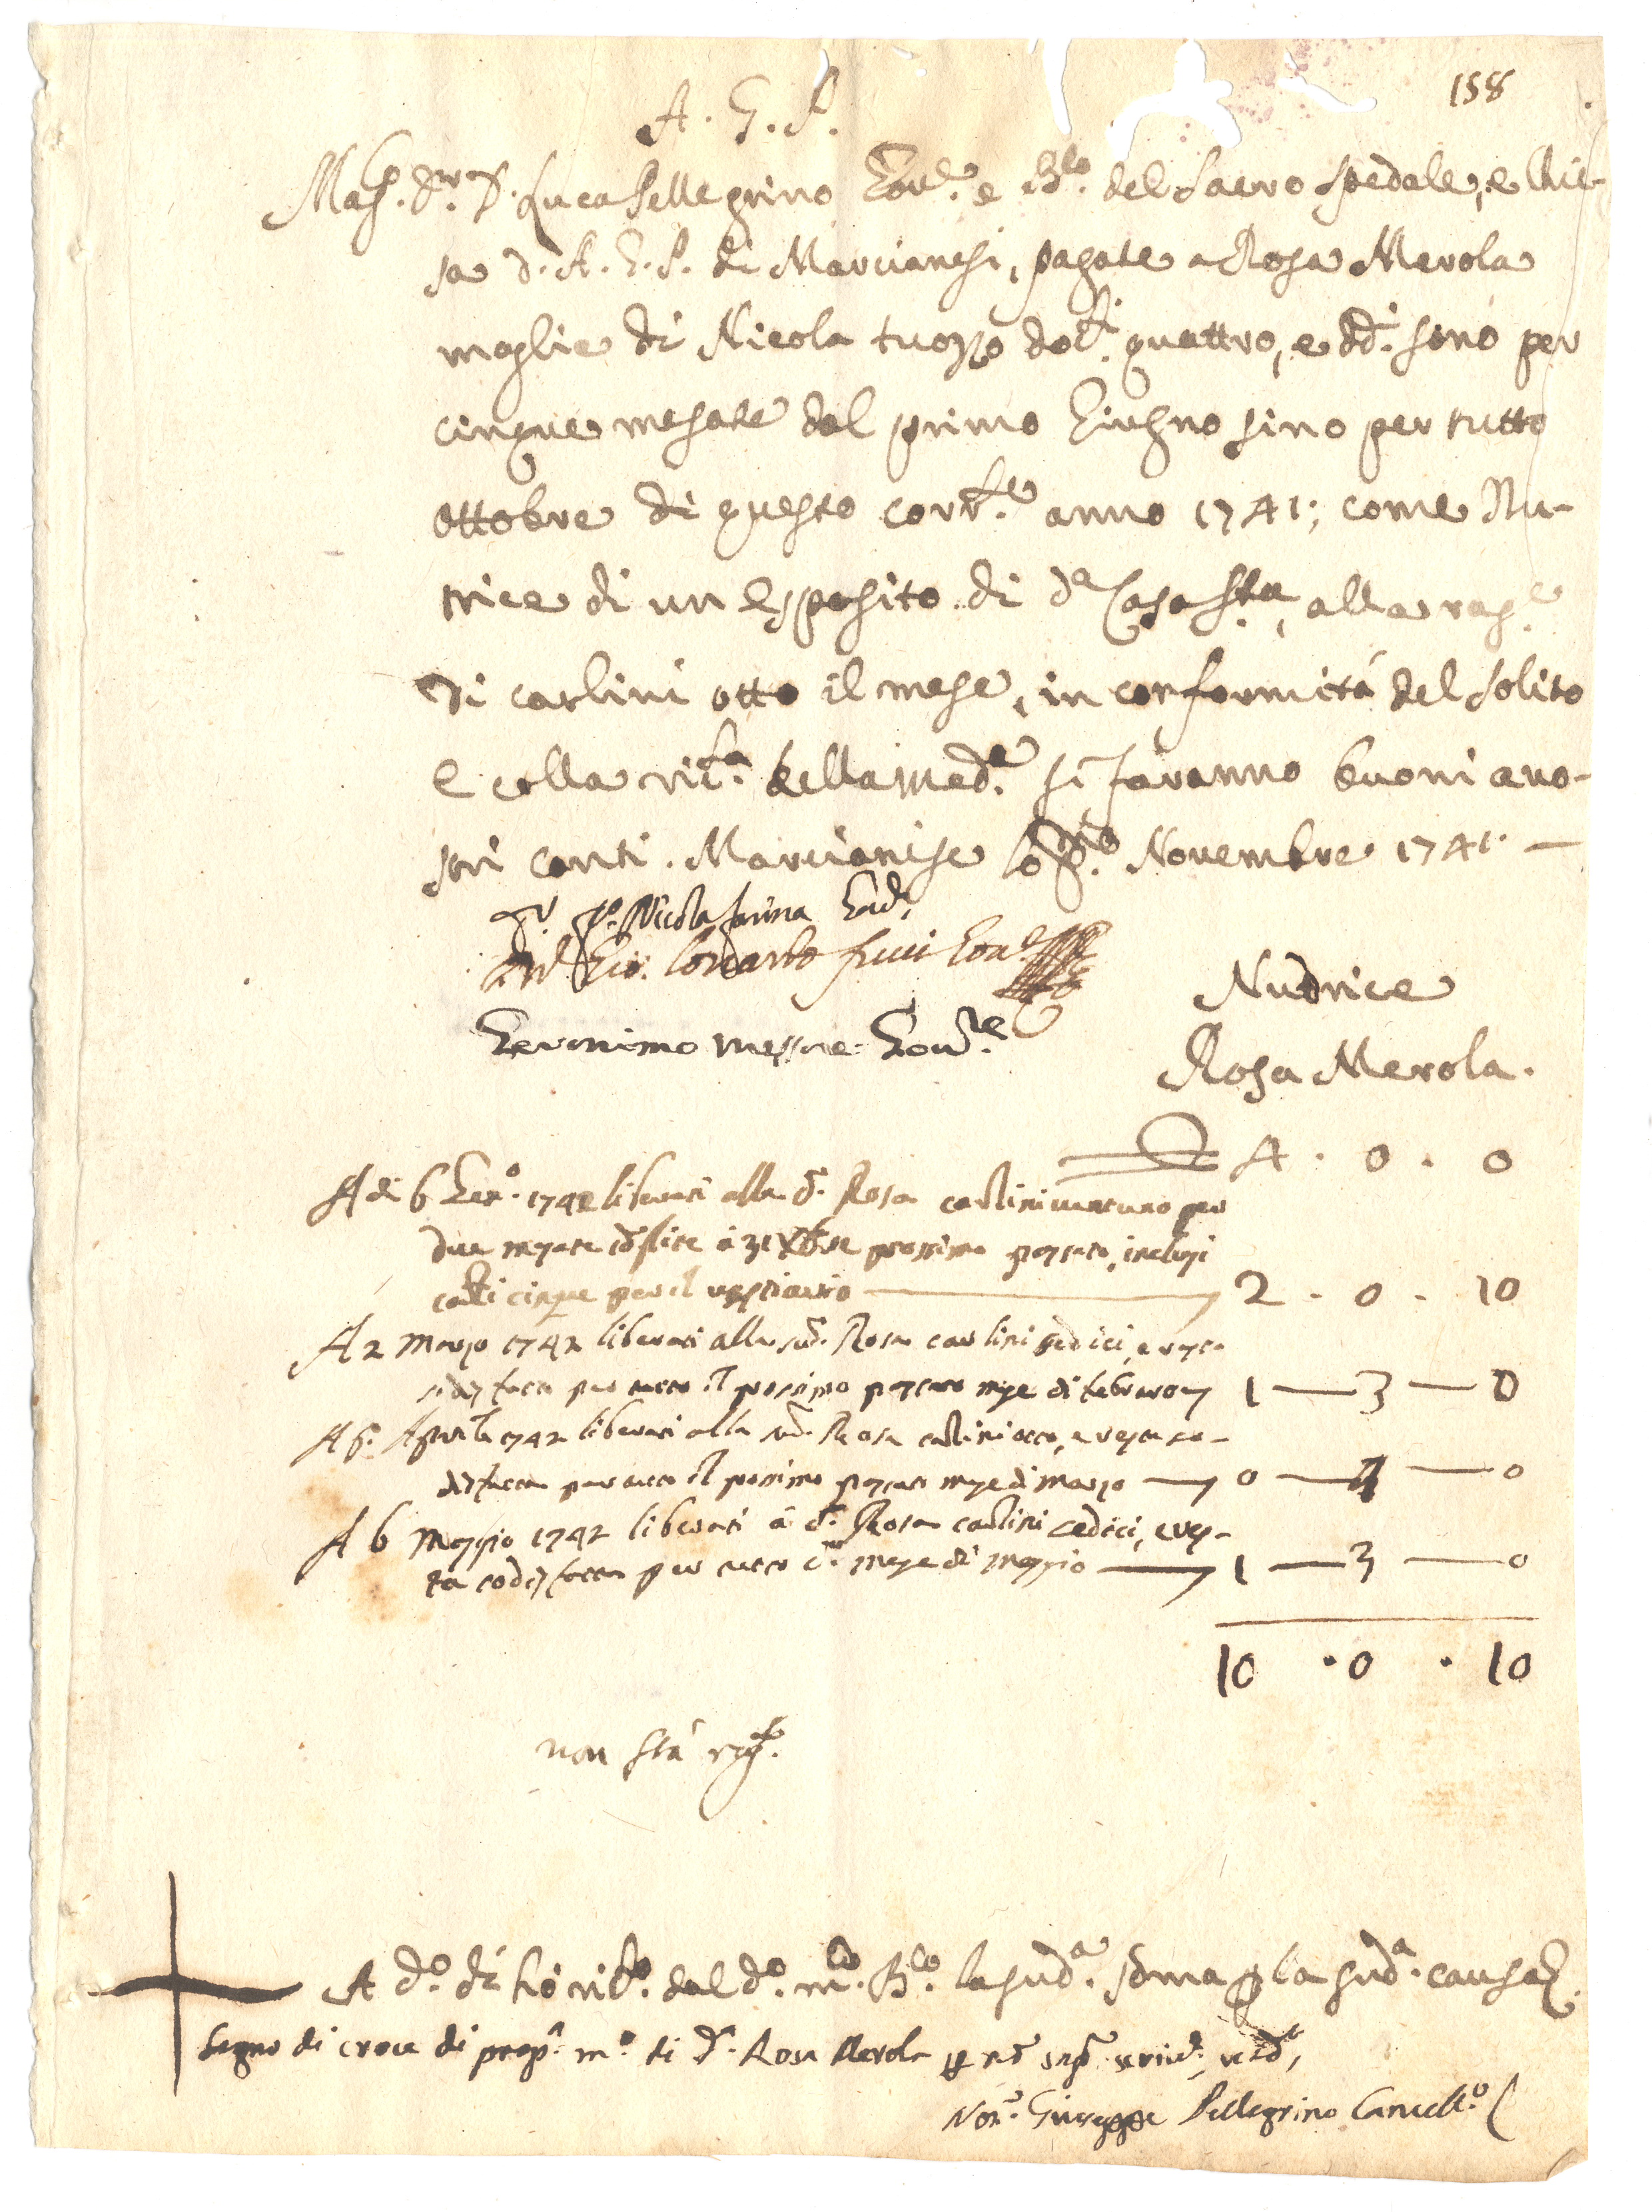 158
A. G. P.
Mag.co D.r D. Luca Pellegrino Gov.e e B.lo del Sacro Spedale, e Chie-
sa d. A. G. P. di Marcianesi, pagate a Rosa Merola
moglie di Nicola tuozzo doc.ti quattro, e dd.i sono per
cinque mesate dal primo Giugno sino per tutto
ottobre di questo corr.te anno 1741; come Nu-
trice di un esposito di d.a Casa S.ta, alla rag.e
di carlini otto il mese, in conformità del solito
e colla ric.ta della med.a si faranno buoni a vo-
stri conti. Marcianise lo p.mo Novembre 1741. —
Nicola farina Gov.
Gio: Gov.e
Geronimo messore Gov.re
Nudrice
Rosa Merola.
4 . 0 . 0
A di 6 Gen.o 1742 liberati alla d.a Rosa carlini ventuno per
due mesate a 31 Xbre prossimo passato, inclusi
carlini cinque per il vestiario — 2 . 0 . 10
A 2 Marzo 1742 liberati alla sud.a Rosa carlini sedici, e resta
sodisfatta per tutto il prossimo passato mese di febraro 1 — 3 — 0
A p.mo Aprile 1742 liberati alla sud.a Rosa carlini otto, e resta so-
disfatta per tutto il prossimo passato mese di Marzo — 0 — 4 — 0
A 6 Maggio 1742 liberati a d.a Rosa carlini sedici, e res-
ta sodisfatta per tutto d.o mese di Maggio — 1 — 3 — 0
10 . 0 . 10
non stà reg.ta
A d.o dì hò ric.to dal d.o m.co B.lo la sud.a soma p la sud.a causa
Segno di croce di prop.a m.o di d.a Rosa Merola p non saper scrivere
Not.r Giuseppe Pellegrino Cancell.o